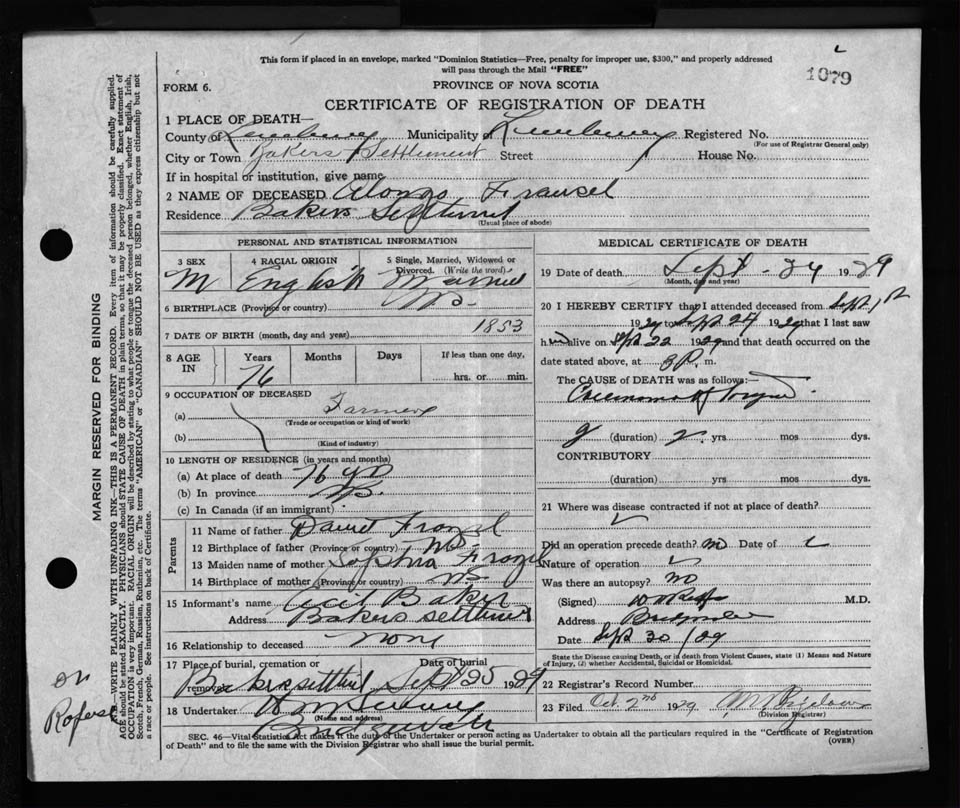 This form if placed in an envelope, marked "Dominion Statistics—Free, penalty for improper use, $300," and properly addressed
will pass through the Mail "FREE"
1079
FORM 6.
PROVINCE OF NOVA SCOTIA
CERTIFICATE OF REGISTRATION OF DEATH
1 PLACE OF DEATH—
County of Lunenburg Municipality of Lunenburg Registered No.
(For use of Registrar General only)
City or Town Bakers Settlement Street House No.
If in hospital or institution, give name
2 NAME OF DECEASED Alonzo Frausel
Residence Bakers Settlement
(Usual place of abode)
PERSONAL AND STATISTICAL INFORMATION
3 SEX 4 RACIAL ORIGIN 5 Single, Married, Widowed or
Divorced. (Write the word)
M English Married
6 BIRTHPLACE (Province or country) NS.
7 DATE OF BIRTH (month, day and year) 1853
8 AGE IN Years Months Days If less than one day,
76 hrs. or min.
9 OCCUPATION OF DECEASED
(a) Farmer
(Trade or occupation or kind of work)
(b)
(Kind of industry)
10 LENGTH OF RESIDENCE (in years and months)
(a) At place of death 76 yrs
(b) In province NS.
(c) In Canada (if an immigrant)
Parents
11 Name of father David Frozel
12 Birthplace of father (Province or country) NS
13 Maiden name of mother Sophia Frozel
14 Birthplace of mother (Province or country) NS
15 Informant's name Cecil Baker
Address Bakers Settlement
16 Relationship to deceased None
17 Place of burial, cremation or Date of burial
removal Bakersettlemt Sept 25 1929
18 Undertaker
(Name and address)
Bridgewater
MEDICAL CERTIFICATE OF DEATH
19 Date of death Sept - 24 1929
(Month, day and year)
20 I HEREBY CERTIFY that I attended deceased from Sept 1st
1929 to Sept 24 1929 that I last saw
him alive on Sept 22 1929 and that death occurred on the
date stated above, at 3 P. m.
The CAUSE OF DEATH was as follows:—
Carcinoma of Tongue
(duration) 2 yrs mos dys.
CONTRIBUTORY
(duration) yrs mos dys.
21 Where was disease contracted if not at place of death?
Did an operation precede death? no Date of
Nature of operation
Was there an autopsy? no
(Signed) M.D.
Address Bridgewater
Date Sept 30 /29
State the Disease causing Death, or in death from Violent Causes, state (1) Means and Nature
of Injury, (2) whether Accidental, Suicidal or Homicidal.
22 Registrar's Record Number
23 Filed Oct 2nd 1929
(Division Registrar)
SEC. 46—Vital Statistics Act makes it the duty of the Undertaker or person acting as Undertaker to obtain all the particulars required in the "Certificate of Registration
of Death" and to file the same with the Division Registrar who shall issue the burial permit.
(OVER)
MARGIN RESERVED FOR BINDING
WRITE PLAINLY WITH UNFADING INK—THIS IS A PERMANENT RECORD. Every item of information should be carefully supplied.
AGE should be stated EXACTLY. PHYSICIANS should STATE CAUSE OF DEATH in plain terms, so that it may be properly classified. Exact statement of
OCCUPATION is very important. RACIAL ORIGIN will be described by stating to what people or tongue the deceased person belonged, whether English, Irish,
Scotch, French, German, Russian, Ruthenian, etc. The terms "AMERICAN" or "CANADIAN" SHOULD NOT BE USED as they express citizenship but not
a race or people. See instructions on back of Certificate.
on